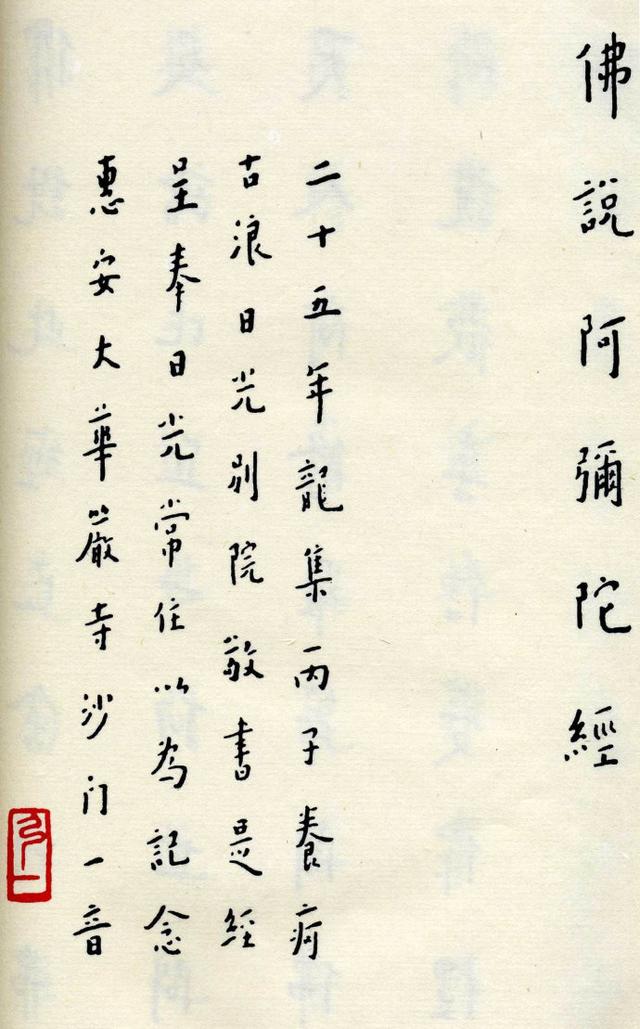 佛說阿彌陀經
二十五年龍集丙子養疴
古浪日光別院敬書是經
呈奉日光常住以為記念
惠安大華嚴寺沙门一音
弘一